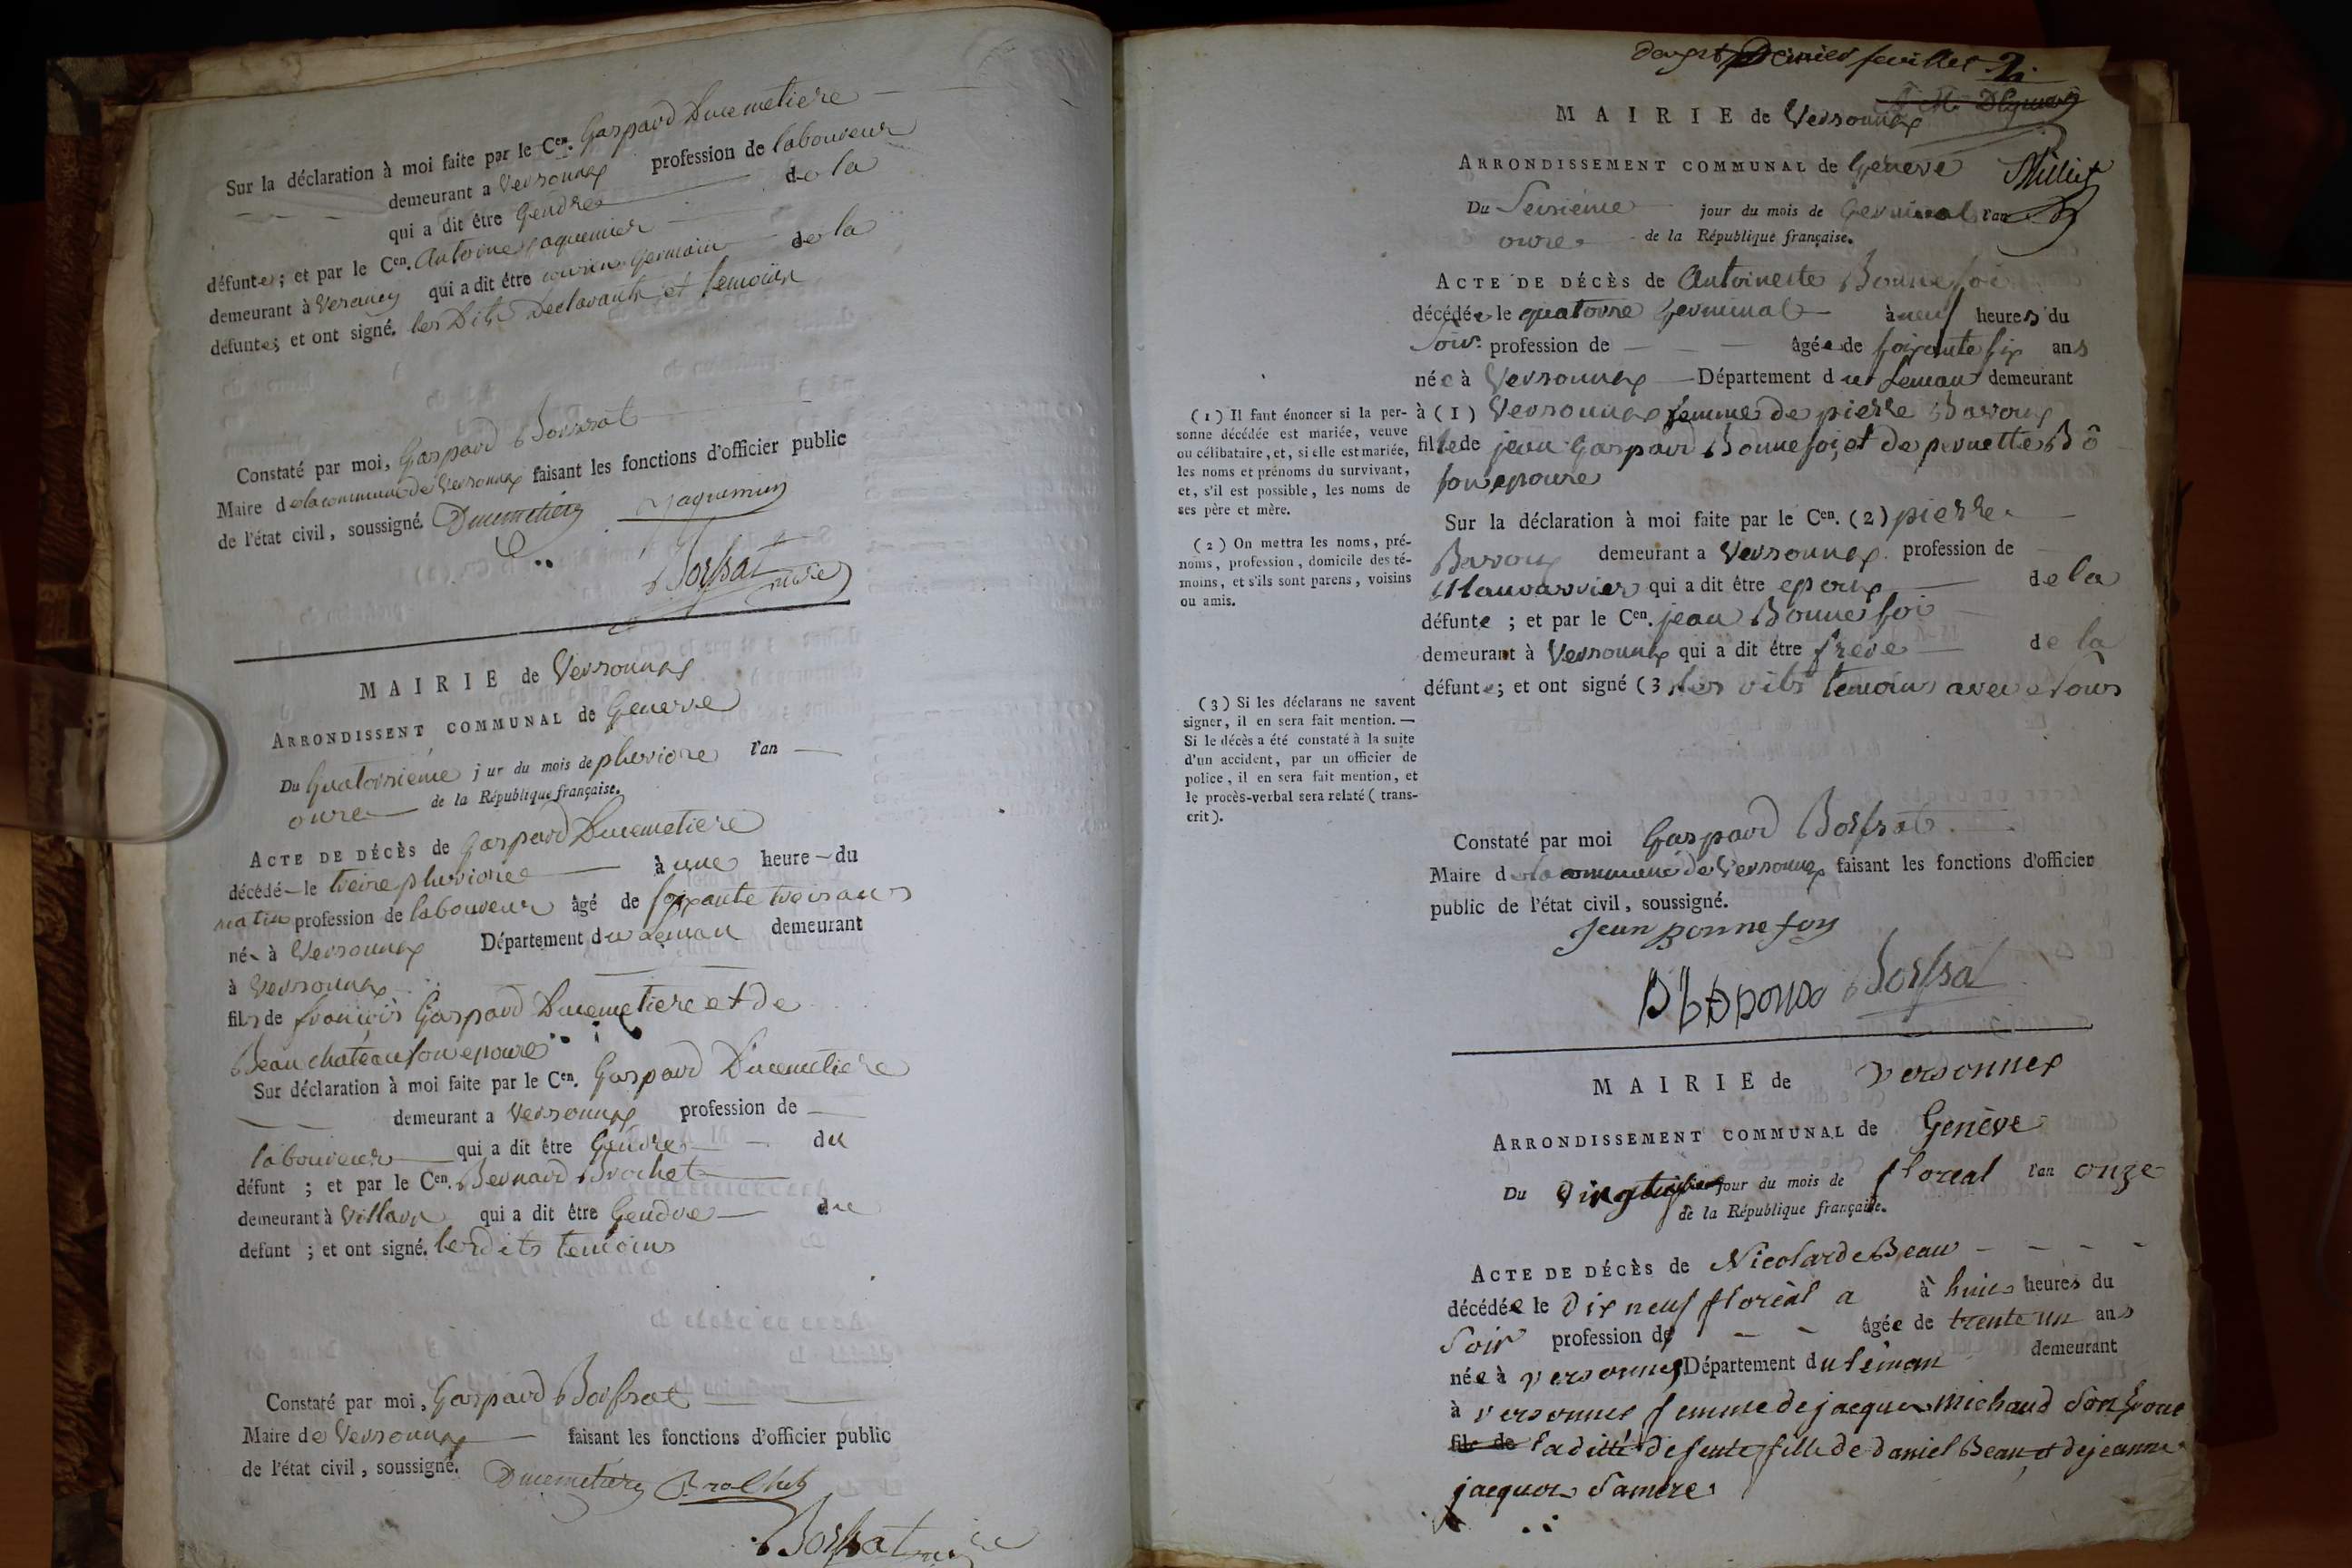 Sur la déclaration à moi faite par le Cen. Gaspard Ducemetiere
demeurant a Versonnex profession de laboureur
qui a dit être Gendre de la
défunte; et par le Cen. Antoine jaquemier
demeurant à Verancy qui a dit être cousin Germain de la
défunte; et ont signé. les Dits Declarants et temoins
Constaté par moi, Gaspard Boissat
Maire de la commune de Versonnex faisant les fonctions d'officier public
de l'état civil, soussigné. Ducemetiere
Jaquemier
Boissat maire
MAIRIE de Versonnex
ARRONDISSENT COMMUNAL de Geneve
Du Quatorzieme j ur du mois de pluviose l'an
onze de la République française.
ACTE DE DÉCÈS de Gaspard Ducemetiere
décédé le treize pluviose à une heure du
matin profession de laboureur âgé de soixante trois ans
né à Versonnex Département du Leman demeurant
à Versonnex
fils de françois Gaspard Ducemetiere et de
Beauchateau son epouse
Sur déclaration à moi faite par le Cen. Gaspard Ducemetiere
demeurant a Versonnex profession de
laboureur qui a dit être Gendre du
défunt ; et par le Cen. Bernard Brochet
demeurant à Villard qui a dit être Gendre du
défunt ; et ont signé. lesdits temoins
Constaté par moi, Gaspard Boissat
Maire de Versonnex faisant les fonctions d'officier public
de l'état civil, soussigné. Ducemetiere Brochet
Boissat maire
feuillet 2.
MAIRIE de Versonnex
ARRONDISSEMENT COMMUNAL de Geneve
Du Seizieme jour du mois de Germinal l'an
onze de la République française.
ACTE DE DÉCÈS de Antoinette Bonnefoi
décédée le quatorze Germinal à neuf heures du
Soir profession de âgée de soixante six ans
née à Versonnex Département du Leman demeurant
à (1) Versonnex femme de pierre Baroux
fille de jean Gaspard Bonnefoi, et de pernette Bô
son epouse
(1) Il faut énoncer si la per-
sonne décédée est mariée, veuve
ou célibataire, et, si elle est mariée,
les noms et prénoms du survivant,
et, s'il est possible, les noms de
ses père et mère.
Sur la déclaration à moi faite par le Cen. (2) pierre
Baroux demeurant a Versonnex profession de
qui a dit être epoux de la
défunte ; et par le Cen. jean Bonnefoi
demeurant à Versonnex qui a dit être frere de la
défunte; et ont signé (3 les dits temoins avec
(2) On mettra les noms, pré-
noms, profession, domicile des té-
moins, et s'ils sont parens, voisins
ou amis.
(3) Si les déclarans ne savent
signer, il en sera fait mention. —
Si le décès a été constaté à la suite
d'un accident, par un officier de
police, il en sera fait mention, et
le procès-verbal sera relaté ( trans-
crit ).
Constaté par moi Gaspard Boissat
Maire de la commune de Versonnex faisant les fonctions d'officier
public de l'état civil, soussigné.
Jean Bonnefoy
Boissat
MAIRIE de Versonnex
ARRONDISSEMENT COMMUNAL de Genève
Du jour du mois de floreal l'an onze
de la République française.
ACTE DE DÉCÈS de Nicolarde Beau
décédée le Dix neuf floréal a à huit heures du
Soir profession de âgée de trente un ans
née à versonnex Département du léman demeurant
à versonnex femme de jacques michaud
fils de laditte defunte fille de daniel Beau et de jeanne
jacquot Samere